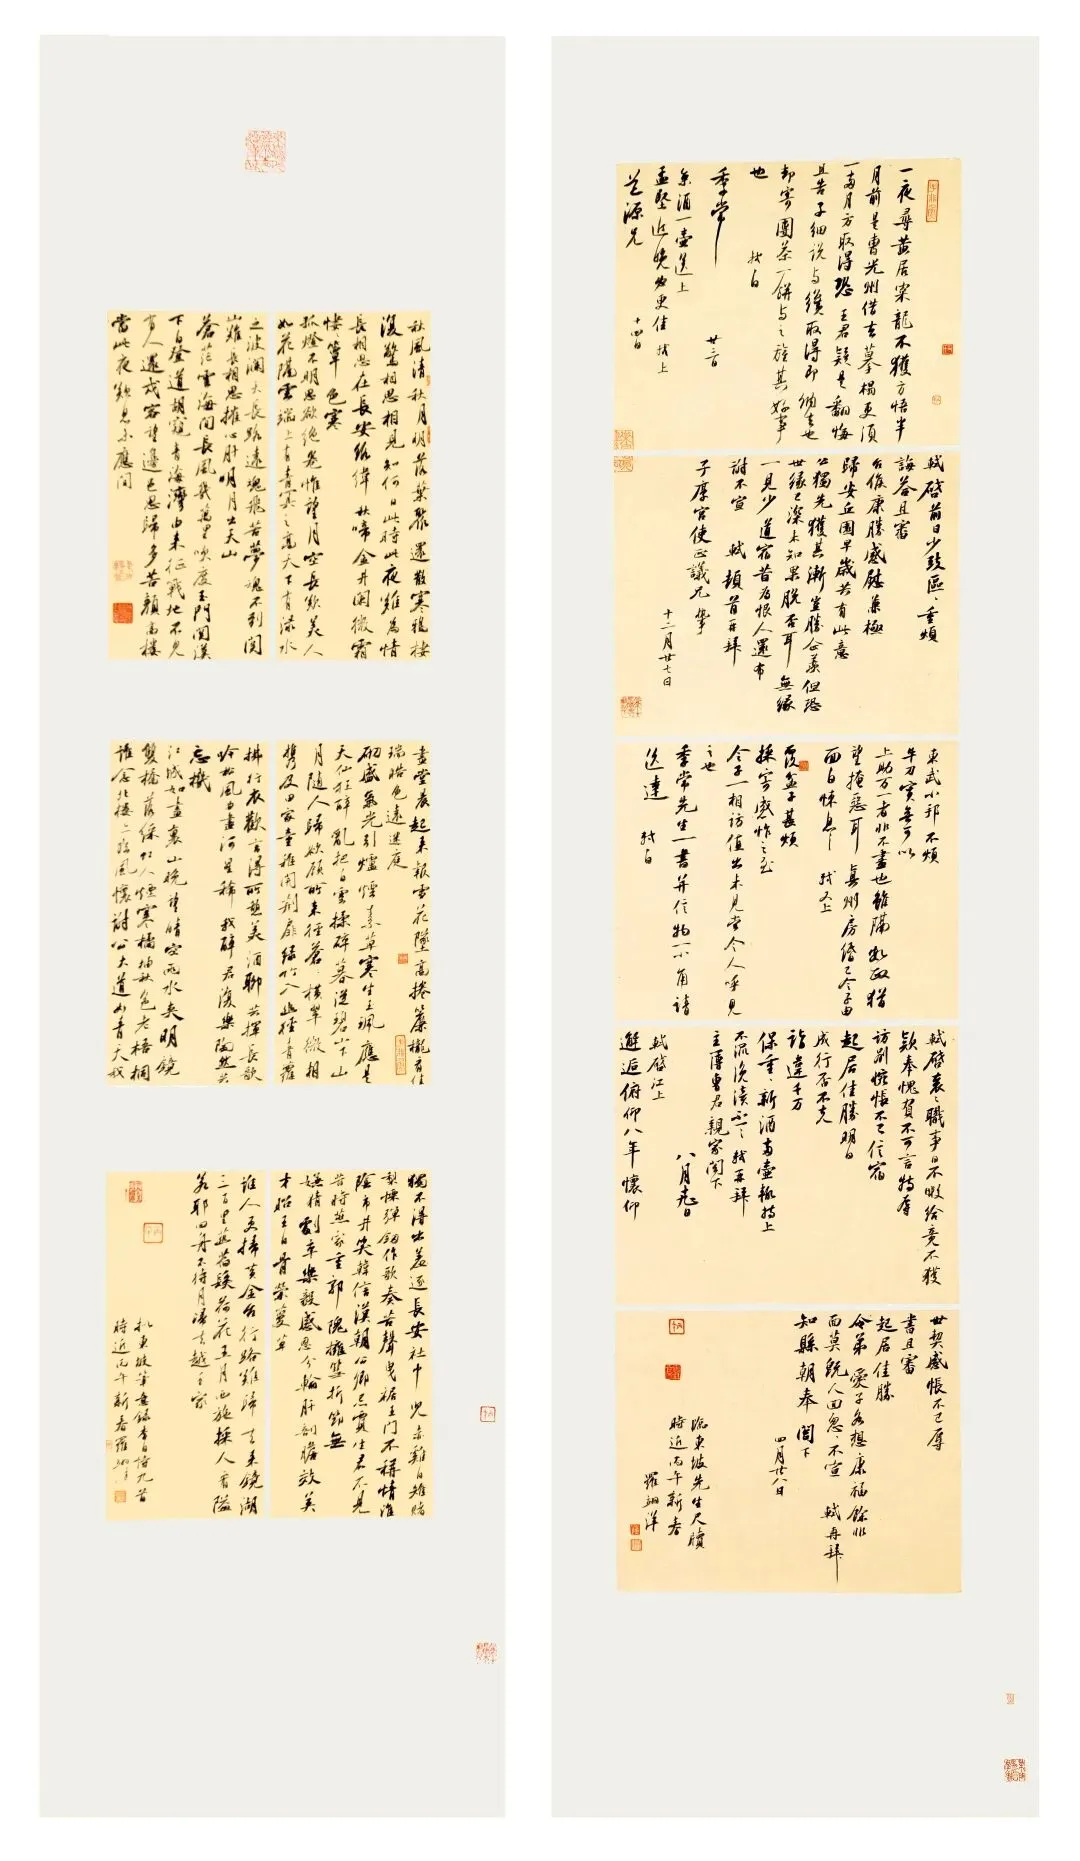 一夜尋黃居寀龍不獲方悟半
月前是曹光州借去摹搨更須
一兩月方取得恐王君疑是翻悔
且告子細說与纔取得即納去也
却寄團茶一餅与之旌其好事
也
軾白
季常
廿三日
糸酒一壺送上
孟堅近晚必更佳 軾上
道源兄
十四日
軾啓前日少致區區重煩
誨荅且審
台候康勝感慰兼極
歸安丘園早歲共有此意
公獨先獲其漸豈勝企羨但恐
世緣已深未知果脫否耳無緣
一見少道宿昔爲恨人還布
謝不宣 軾頓首再拜
子厚宮使正議兄執事
十二月廿七日
東武小邦不煩
牛刀實無可以
上助万一者非不盡也雖隔數政猶
望掩惡耳 真州房緡已令子由
面白悚息 軾又上
覆盆子甚煩
採寄感怍之至
令子一相訪值出未見當令人呼見
之也
季常先生一書并信物一小角請
送達
軾白
軾啓衰衰職事日不暇給竟不獲
款奉愧負不可言特辱
訪別惋悵不已信宿
起居佳勝明日
成行否不克
詣違千万
保重保重新酒兩壺輒持上
不沉浼瀆不一不一軾再拜
主簿曹君親家閣下
八月卅日
軾啓江上
邂逅俯仰八年懷仰
世契感悵不已辱
書且審
起居佳勝
令弟愛子各想康福餘非
面莫旣人回怱怱不宣 軾再拜
知縣朝奉閣下
四月廿八日
臨東坡先生尺牘
時近丙午新春
羅翊洋
秋風清秋月明落葉聚還散寒鴉棲
復驚相思相見知何日此時此夜難為情
長相思在長安絡緯秋啼金井闌微霜
悽悽簟色寒
孤燈不明思欲絕卷帷望月空長歎美人
如花隔雲端上有青冥之高天下有淥水
之波瀾天長路遠魂飛苦夢魂不到関
山難長相思摧心肝明月出天山
蒼茫雲海間長風幾萬里吹度玉門関漢
下白登道胡窺青海灣由来征戰地不見
有人還戍客望邊色思歸多苦顏高樓
當此夜歎息未應閒
畫堂晨起来報雪花墜高捲簾櫳看佳
瑞皓色遠迷庭
砌盛氣光引爐煙素草寒生玉珮應是
天仙狂醉亂把白雲揉碎暮從碧山下山
月隨人歸欲顧所来徑蒼蒼橫翠微相
携及田家童稚開荊扉綠竹入幽徑青蘿
拂行衣歡言得所憩美酒聊共揮長歌
吟松風曲盡河星稀我醉君復樂陶然共
忘機
江城如畫裏山晚望晴空兩水夹明鏡
雙橋落綵虹人煙寒橘柚秋色老梧桐
誰念北樓上臨風懷謝公大道如青天我
獨不得出羞逐長安社中兒赤雞白雉賭
梨慄彈劍作歌奏苦聲曳裾王門不稱情淮
陰市井笑韓信漢朝公卿忌賈生君不見
昔時燕家重郭隗擁篲折節無
嫌猜劇辛樂毅感恩分輸肝剖膽效英
才昭王白骨縈蔓草
誰人更掃黃金台行路難歸去来鏡湖
三百里菡萏發荷花五月西施採人看隘
若耶回舟不待月歸去越王家
時近丙午新春羅翊洋